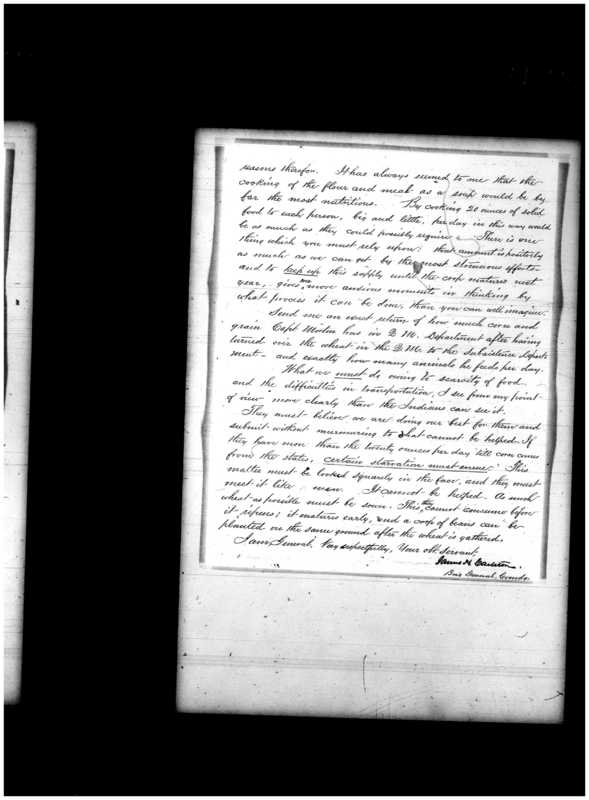 reasons therefor. It has always seemed to me that the
cooking of the flour and meal as a soup would be by
far the most nutritious. By cooking 20 ounces of solid
food to each person, big and little, per day in this way would
be as much as they could possibly require. There is one
thing which you must rely upon: that amount is positively
as much as we can get by the most strenuous efforts-
and to keep up this supply until the crop matures next
year, gives me more anxious moments in thinking by
what process it can be done, than you can well imagine.
Send me an exact return of how much corn and
grain Capt in Q. M. Department after having
turned over the wheat in the Q. M. to the Subsistence Depart-
ment - and exactly how many animals he feeds per day.
What we must do owing to scarcity of food
and the difficulties in transportation, I see from my point
of view more clearly than the Indians can see it.
They must believe we are doing our best for them and
submit without murmuring to what cannot be helped. If
they have more than the twenty ounces per day till corn comes
from the states, certain starvation must ensue. This
matter must be looked squarely in the face, and they must
meet it like men. It cannot be helped. As much
wheat as possible must be sown. This, they cannot consume before
it ripens; it matures early, and a crop of beans can be
planted on the same ground after the wheat is gathered.
I am, General, Very respectfully, Your Obt. Servant,
James H. Carleton.
Brig. General, Comdg.